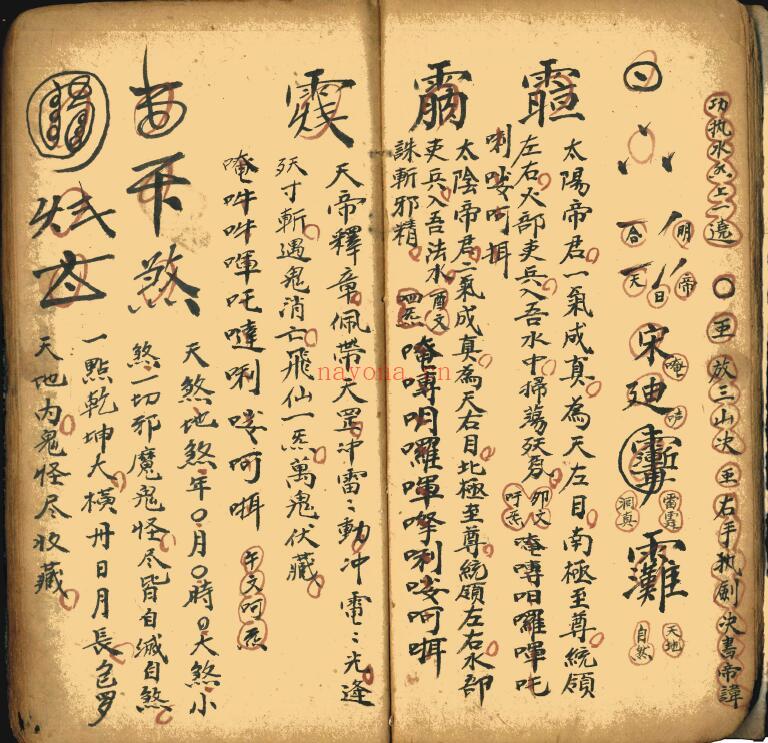 功执水盂上一遶
〇至 放三山决 至右手执劍决書帝諱
明 帝
合 天
日
宋迪
唵
雷霆
洞真
灘
天地
自然
太陽帝君一氣成真為天左目南極至尊統領
左右火部吏兵入吾水中掃蕩妖氛
卯文
吽炁
唵嚩呾囉喗吒
唎㖿呵㖇
太陰帝君二氣成真為天右目北極至尊統領左右水部
吏兵入吾法水
酉文
唵嚩呾囉喗
唎㖿呵㖇
誅斬邪精
天帝釋章佩帶天罡冲雷：動冲電：光逢
妖寸斬遇鬼消亡飛仙一炁萬鬼伏藏
唵吽吽喗吒噠唎㖿呵㖇
午文呵炁
天煞地煞年〇月〇時〇大煞小
煞一切邪魔鬼怪尽皆自滅自煞
一點乾坤大横丹日月長包罗
天地内鬼怪尽收藏
nayona.cn